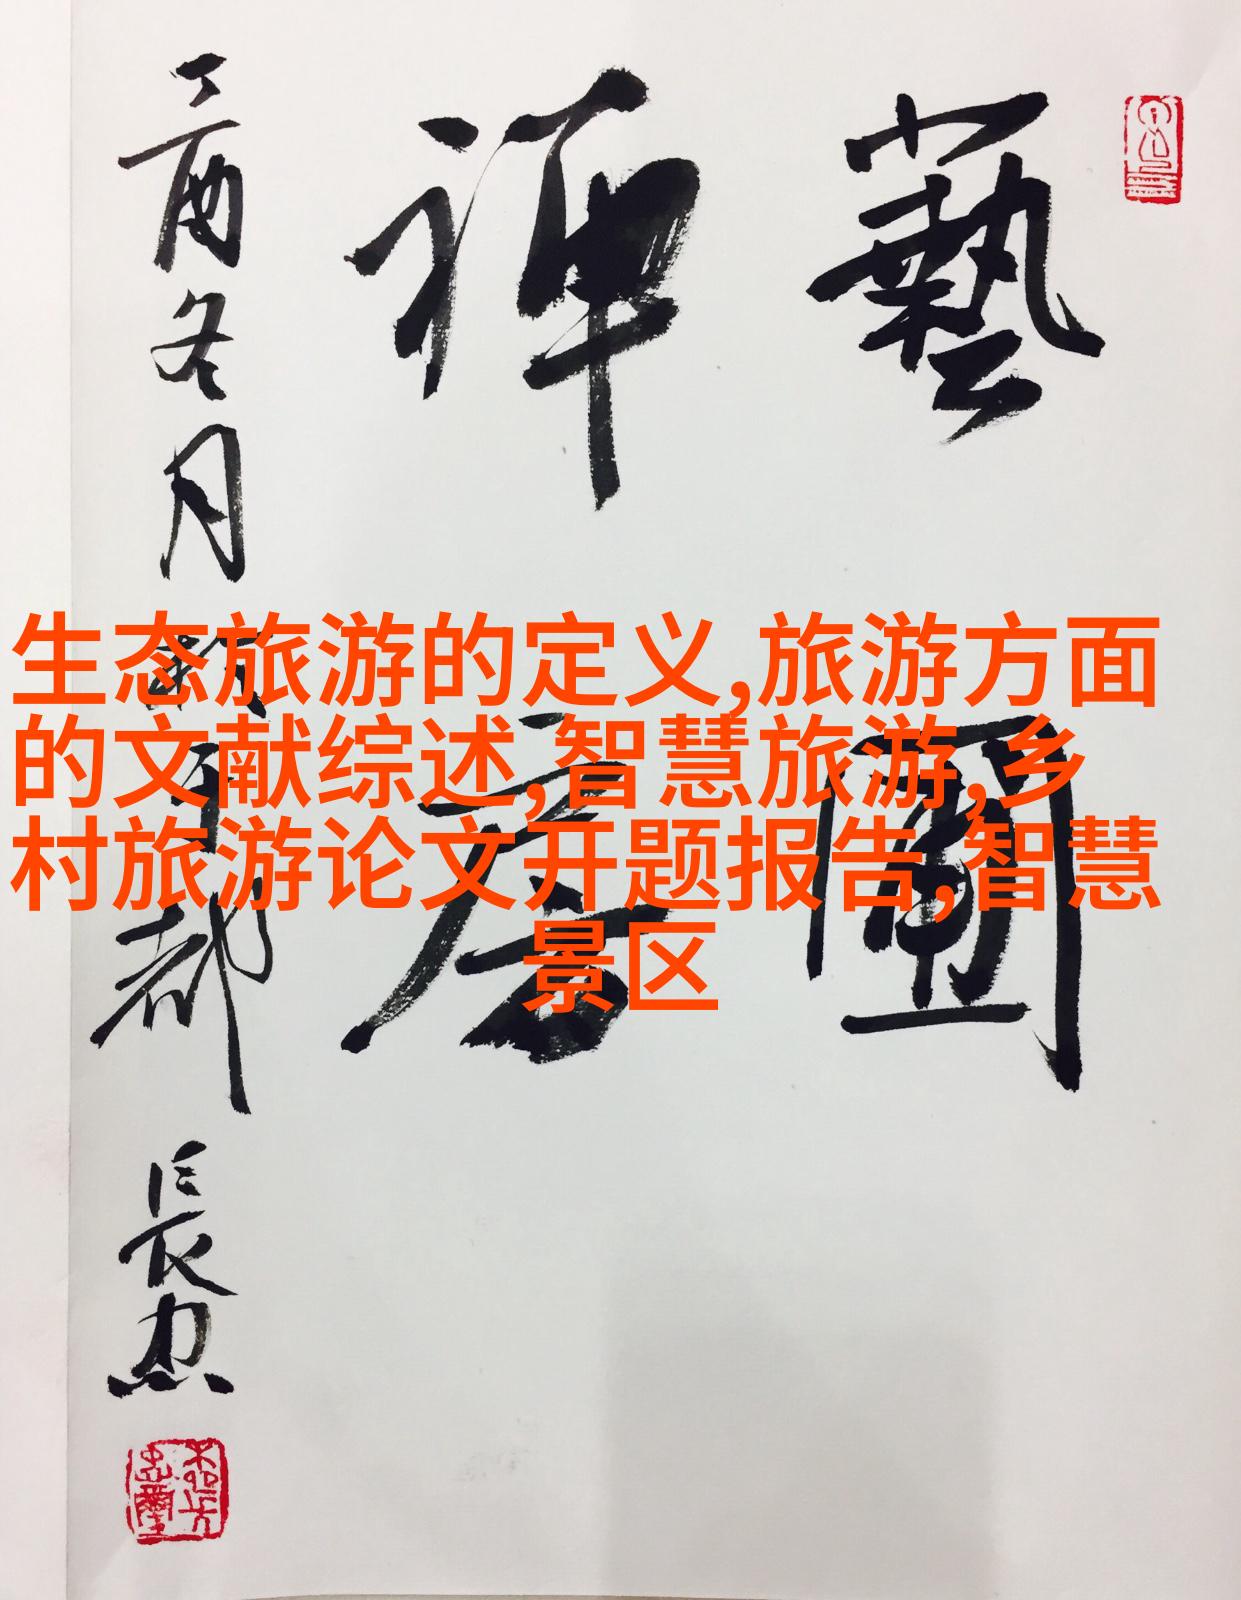 藝圃
禅房
丁酉冬月
都
長忠
生态旅游的定义,旅游方面
的文献综述,智慧旅游,乡
村旅游论文开题报告,智慧
景区